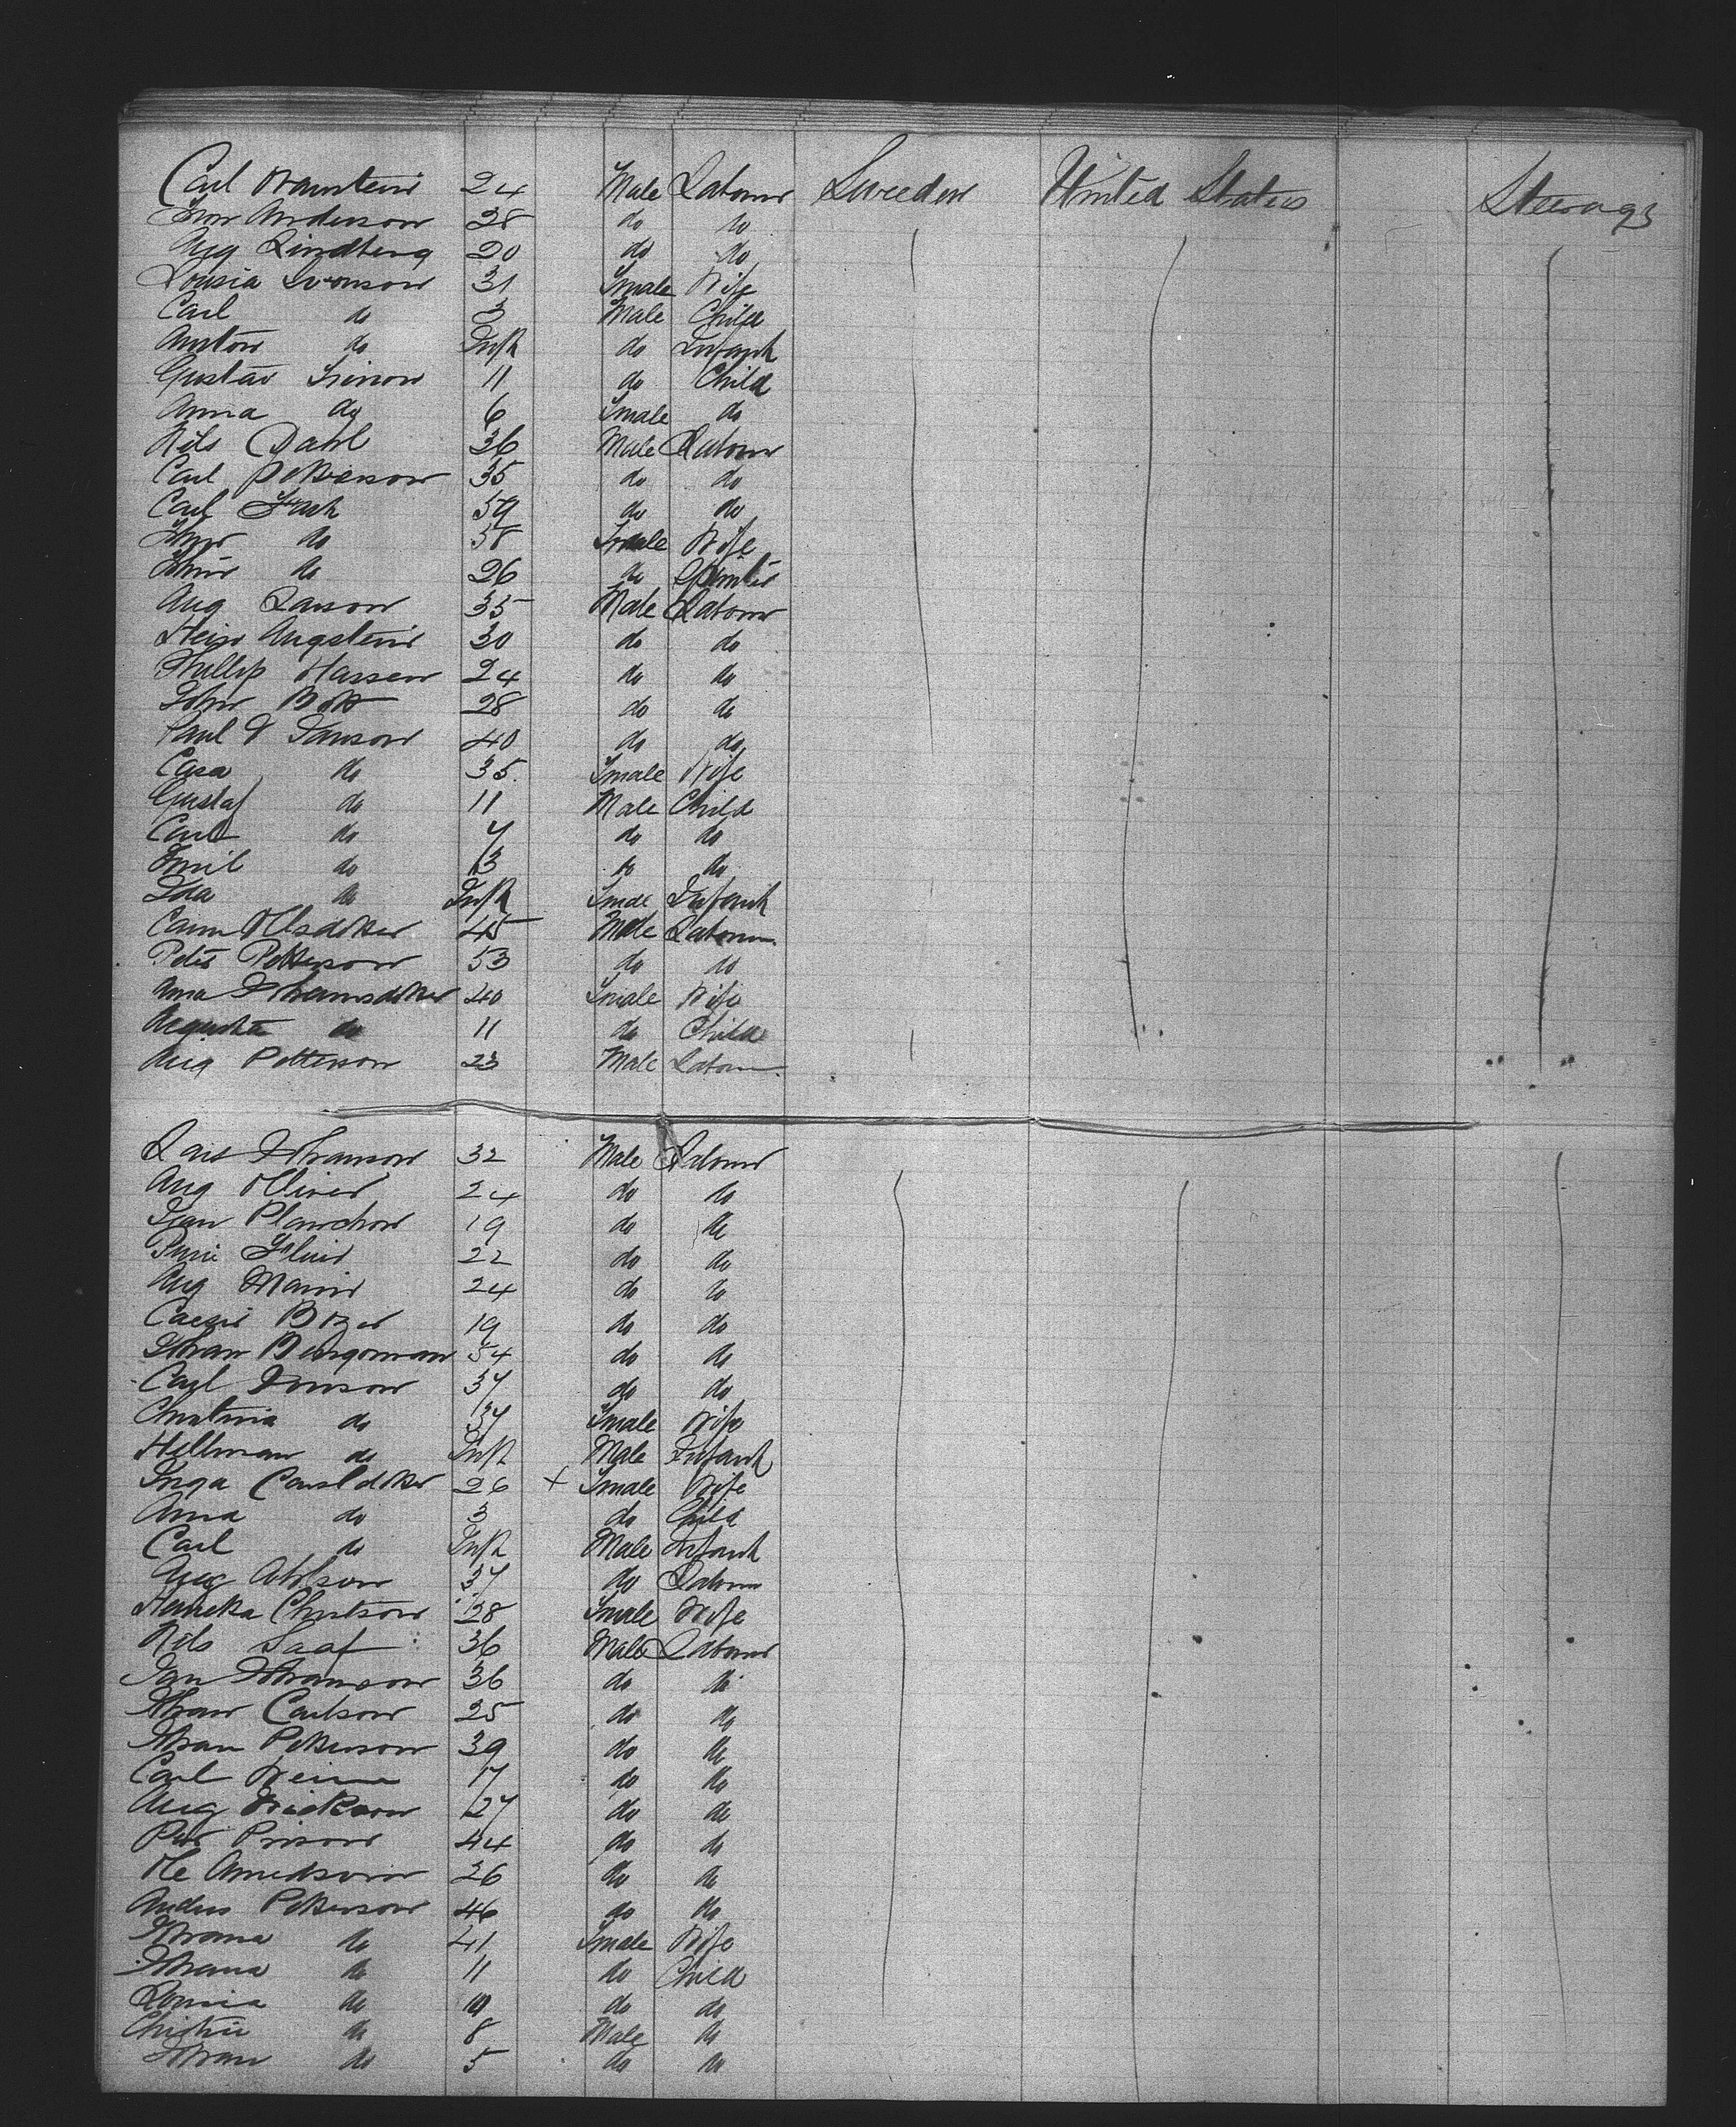 Carl 24 Male Labour Sweeden United States Steerage
Anderson 28 do do
Aug Lindberg 20 do do
Lousia Swonson 31 Fmale Wife
Carl do 3 Male Child
Anton do Inft do Infant
Gustav 11 do Child
Anna do 6 Fmale do
Nils Dahl 36 Male Labour
Carl Petterson 35 do do
Carl 59 do do
do 58 Fmale Wife
do 26 do Spinster
Aug Larson 35 Male Labour
Augstein 30 do do
Phillip Hassen 24 do do
John Bott 28 do do
Paul 40 do do
Casa do 35 Fmale Wife
Gustaf do 11 Male Child
Carl do 7 do do
Emil do 3 do do
Ida do Inft Fmale Infant
45 Male Labour
Peter Petterson 53 do do
Ana Johansdotter 40 Fmale Wife
Augusta do 11 do Child
Aug Petterson 23 Male Labour
Lars Johanson 32 Male Labour
Aug Oliver 24 do do
Jean Planchon 19 do do
22 do do
Aug 24 do do
19 do do
Johan Bergoman 54 do do
Carl Jonson 37 do do
Christina do 37 Fmale Wife
Hellman do Inft Male Infant
Inga Carlsdotter 26 + Fmale Wife
Anna do 3 do Child
Carl do Inft Male Infant
Aug 37 do Labour
28 Fmale Wife
Nils Saaf 36 Male Labour
Jan Johanson 36 do do
Johan Carlson 25 do do
Johan Petterson 39 do do
Carl 17 do do
Aug Erickson 27 do do
44 do do
Ole 26 do do
Anders Petterson 46 do do
Johana do 41 Fmale Wife
Johana do 11 do Child
Lousia do do do
do 8 Male do
Johan do 5 do do